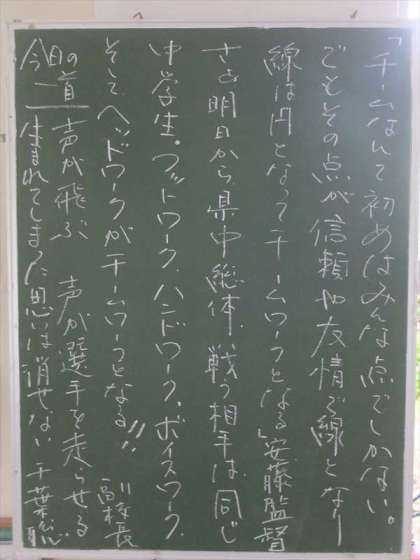 「チームなんて初めはみんな点でしかない。
でもその点が信頼や友情で線となり
線は円となってチームワークとなる」安藤監督
さぁ明日から、県中総体、戦う相手は同じ
中学生。フットワーク、ハンドワーク、ボイスワーク、
そして ヘッドワークがチームワークとなる!!
副校長
今日の一首
声が飛ぶ 声が選手を走らせる
生まれてしまった思いは消せない 千葉聡